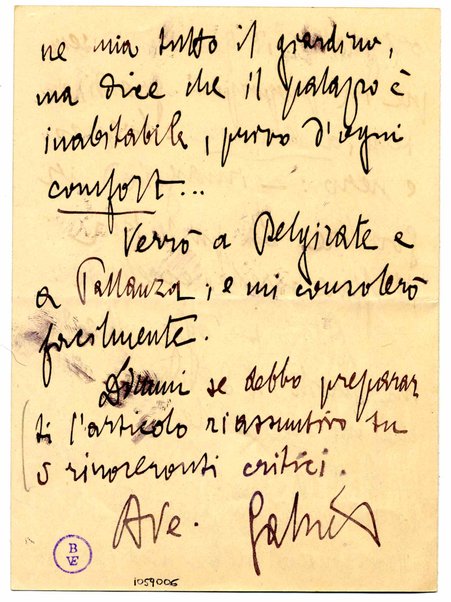 ne mia tutto il giardino,
ma dice che il palazzo è
inabitabile, privo d'ogni
comfort...
Verrò a Belgirate e
a Pallanza, e mi consolerò
facilmente.
Dimmi se debbo preparar
ti l'articolo riassuntivo su
5 rinoceronti critici.
Ave. Gabriel
B
VE
1059006